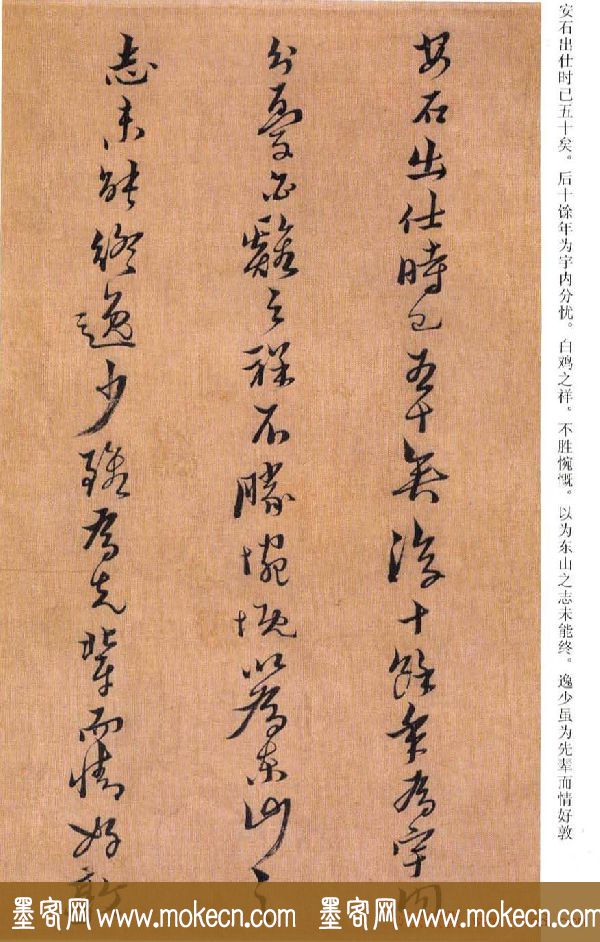 安石出仕时已五十矣。后十馀年为宇内分忧。白鸡之祥。不胜惋慨。以为东山之志未能终。逸少虽为先辈而情好敦
安石出仕時已五十矣後十餘年為宇內
分憂白雞之祥不勝惋慨以為東山之
志未能終逸少雖為先輩而情好敦
墨客网 www.mokecn.com 墨客网 www.mokecn.com